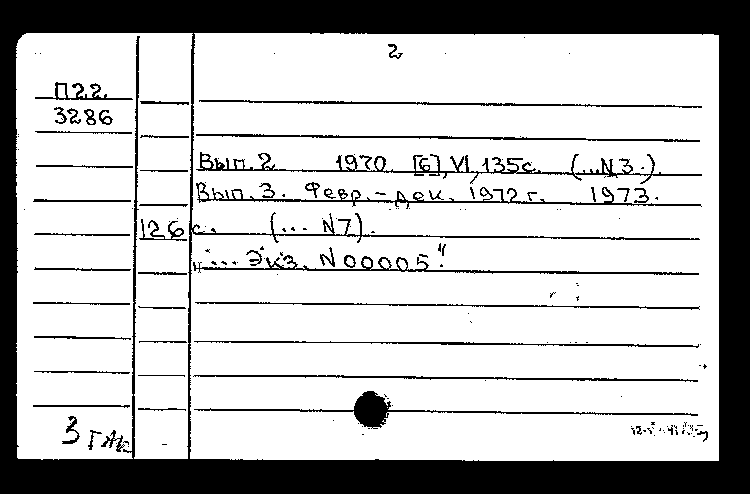 2
П22.
3286
Вып. 2 1970. [6], VI, 135с. (...N3.).
Вып. 3. Февр. – дек. 1972 г. 1973.
126 с. (... N7).
„... Экз. N 00005."
3